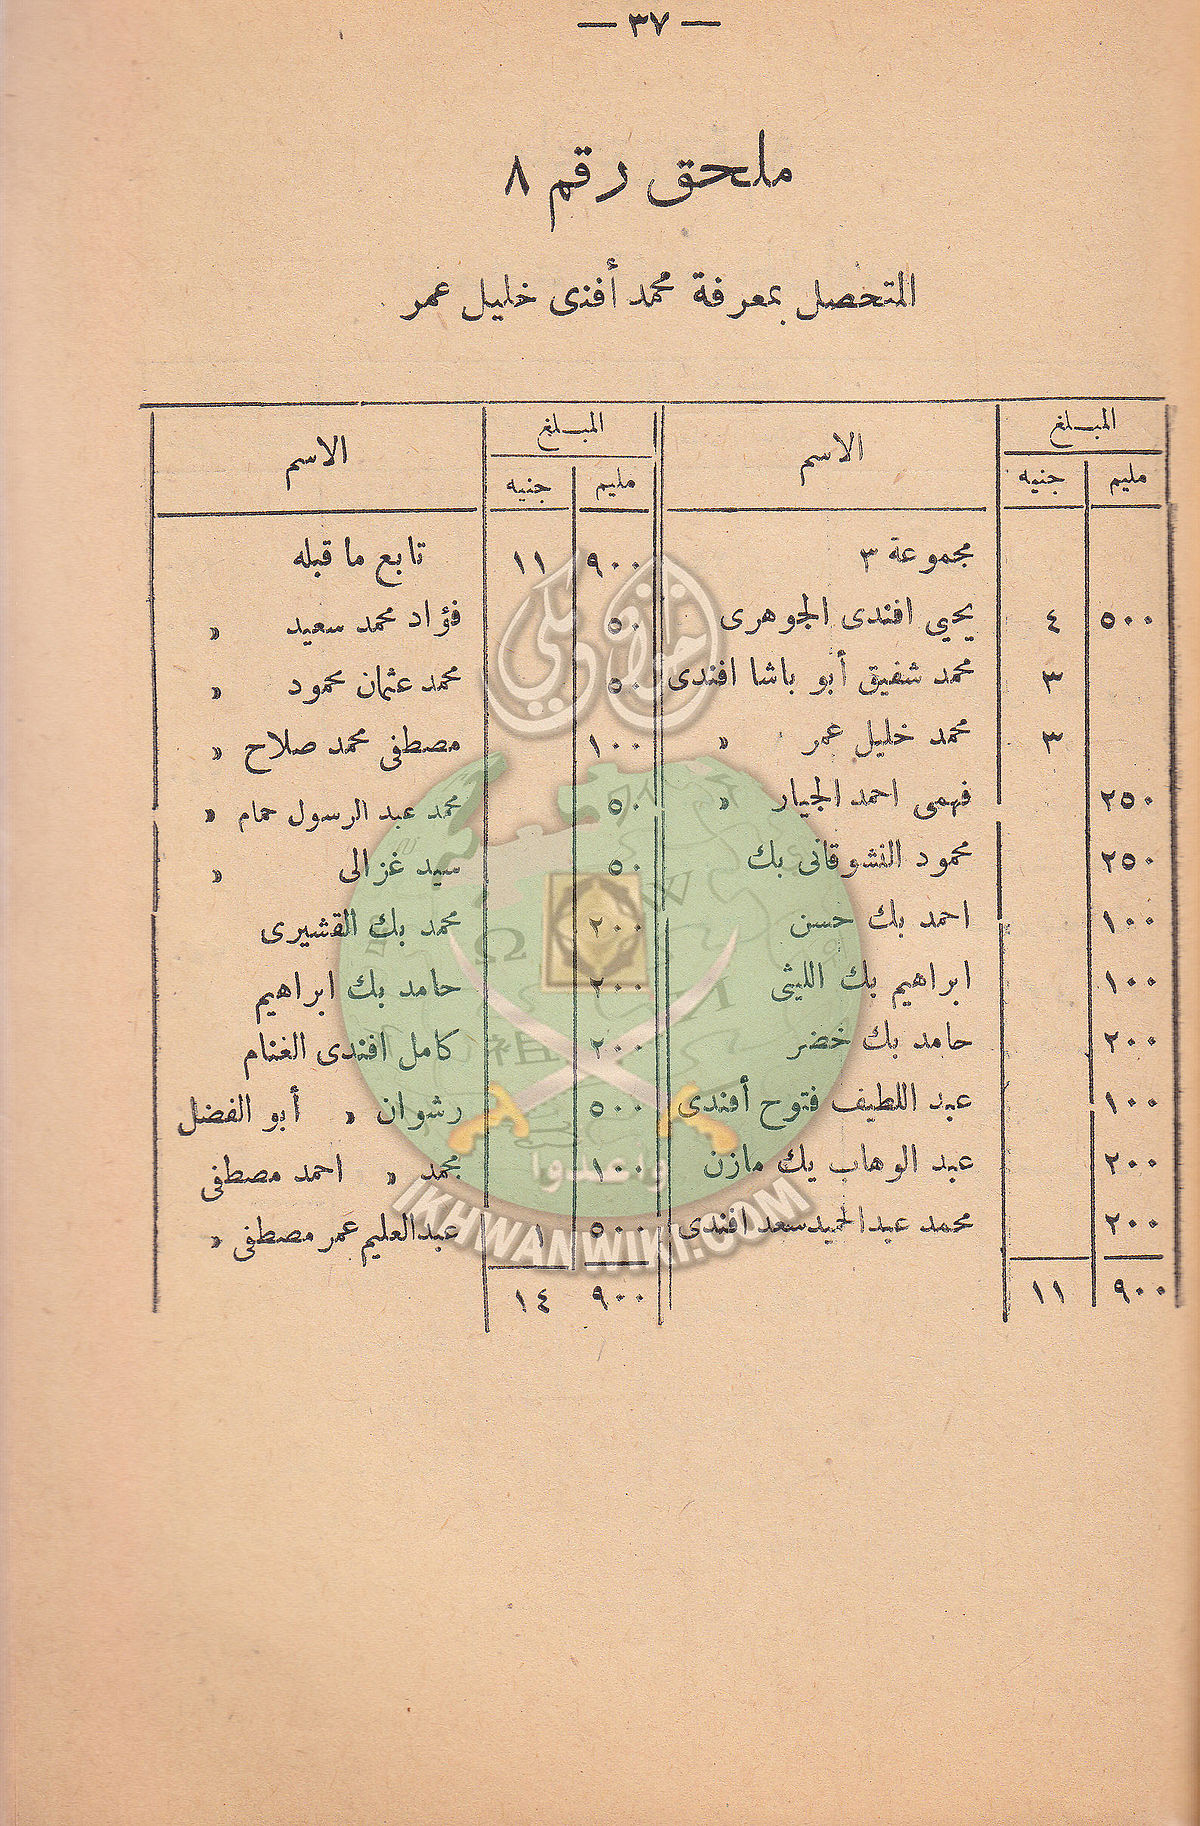 — ٣٧ —
ملحق رقم ٨
المتحصل بمعرفة محمد أفندى خليل عمر
المبلغ الاسم المبلغ الاسم
مليم جنيه مليم جنيه
مجموعة ٣
٥٠٠ ٤ يحيى افندى الجوهرى
٣ محمد شفيق أبو باشا افندى
٣ محمد خليل عمر »
٢٥٠ فهمى احمد الجيار »
٢٥٠ محمود النشوقانى بك
١٠٠ احمد بك حسن
١٠٠ ابراهيم بك الليثى
٢٠٠ حامد بك خضر
١٠٠ عبد اللطيف فتوح أفندى
٢٠٠ عبد الوهاب بك مازن
٢٠٠ محمد عبد الحميد سعد افندى
٩٠٠ ١١
٩٠٠ ١١ تابع ما قبله
٥٠ فؤاد محمد سعيد »
٥٠ محمد عثمان محمود »
١٠٠ مصطفى محمد صلاح »
٥٠ محمد عبد الرسول حمام »
٥٠ سيد غزالى »
٢٠٠ محمد بك القشيرى
٢٠٠ حامد بك ابراهيم
٢٠٠ كامل افندى الغنام
٥٠٠ رشوان » أبو الفضل
١٠٠ محمد » احمد مصطفى
٥٠٠ ١ عبدالعليم عمر مصطفى »
٩٠٠ ١٤
إخوان ويكي
وأعدوا
IKHWANWIKI.COM